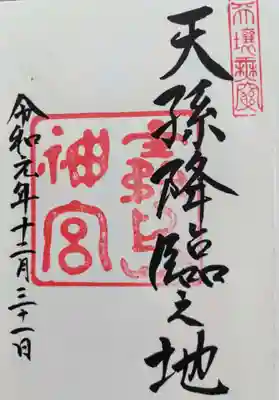 天壌無窮
天孫降臨之地
神宮
令和元年十二月三十一日